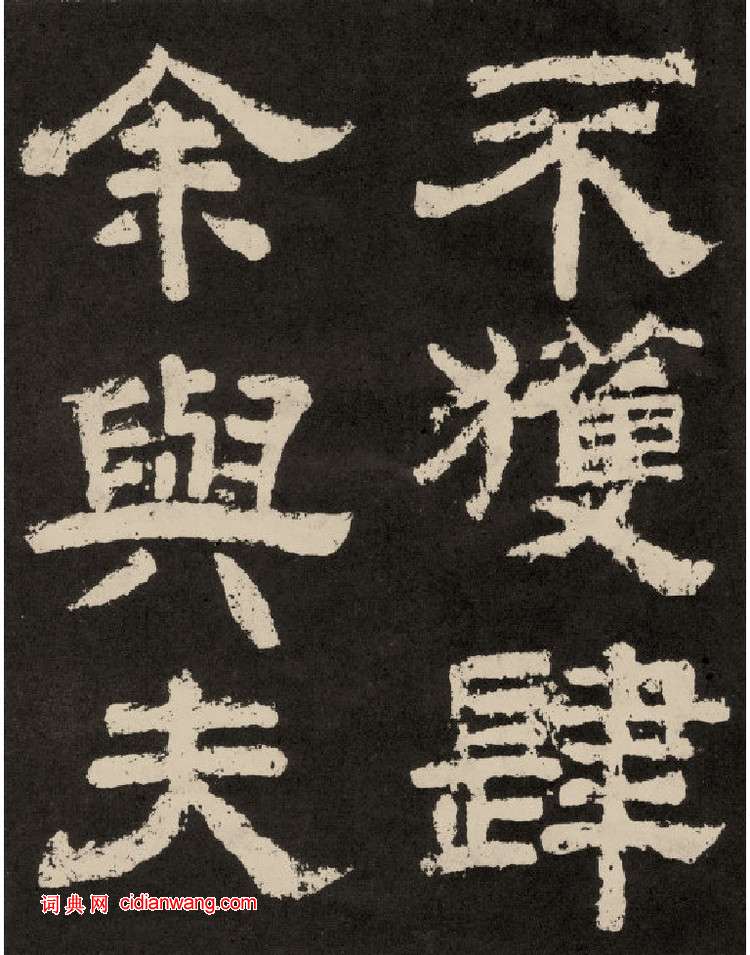 不獲肆
余與夫
词典网 cidianwang.com